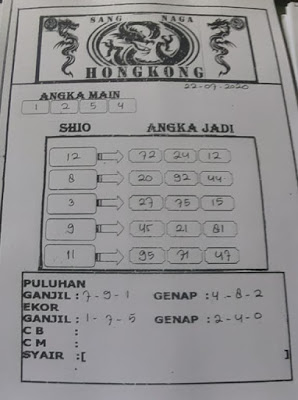 SANG NAGA
HONGKONG
22-07-2020
ANGKA MAIN
1 2 5 4
SHIO ANGKA JADI
12 72 24 12
8 20 92 44
3 27 75 15
9 45 21 81
11 95 71 47
PULUHAN
GANJIL : 7-9-1 GENAP : 4-8-2
EKOR
GANJIL : 1-7-5 GENAP : 2-4-0
C B :
C M :
SYAIR :[ ]